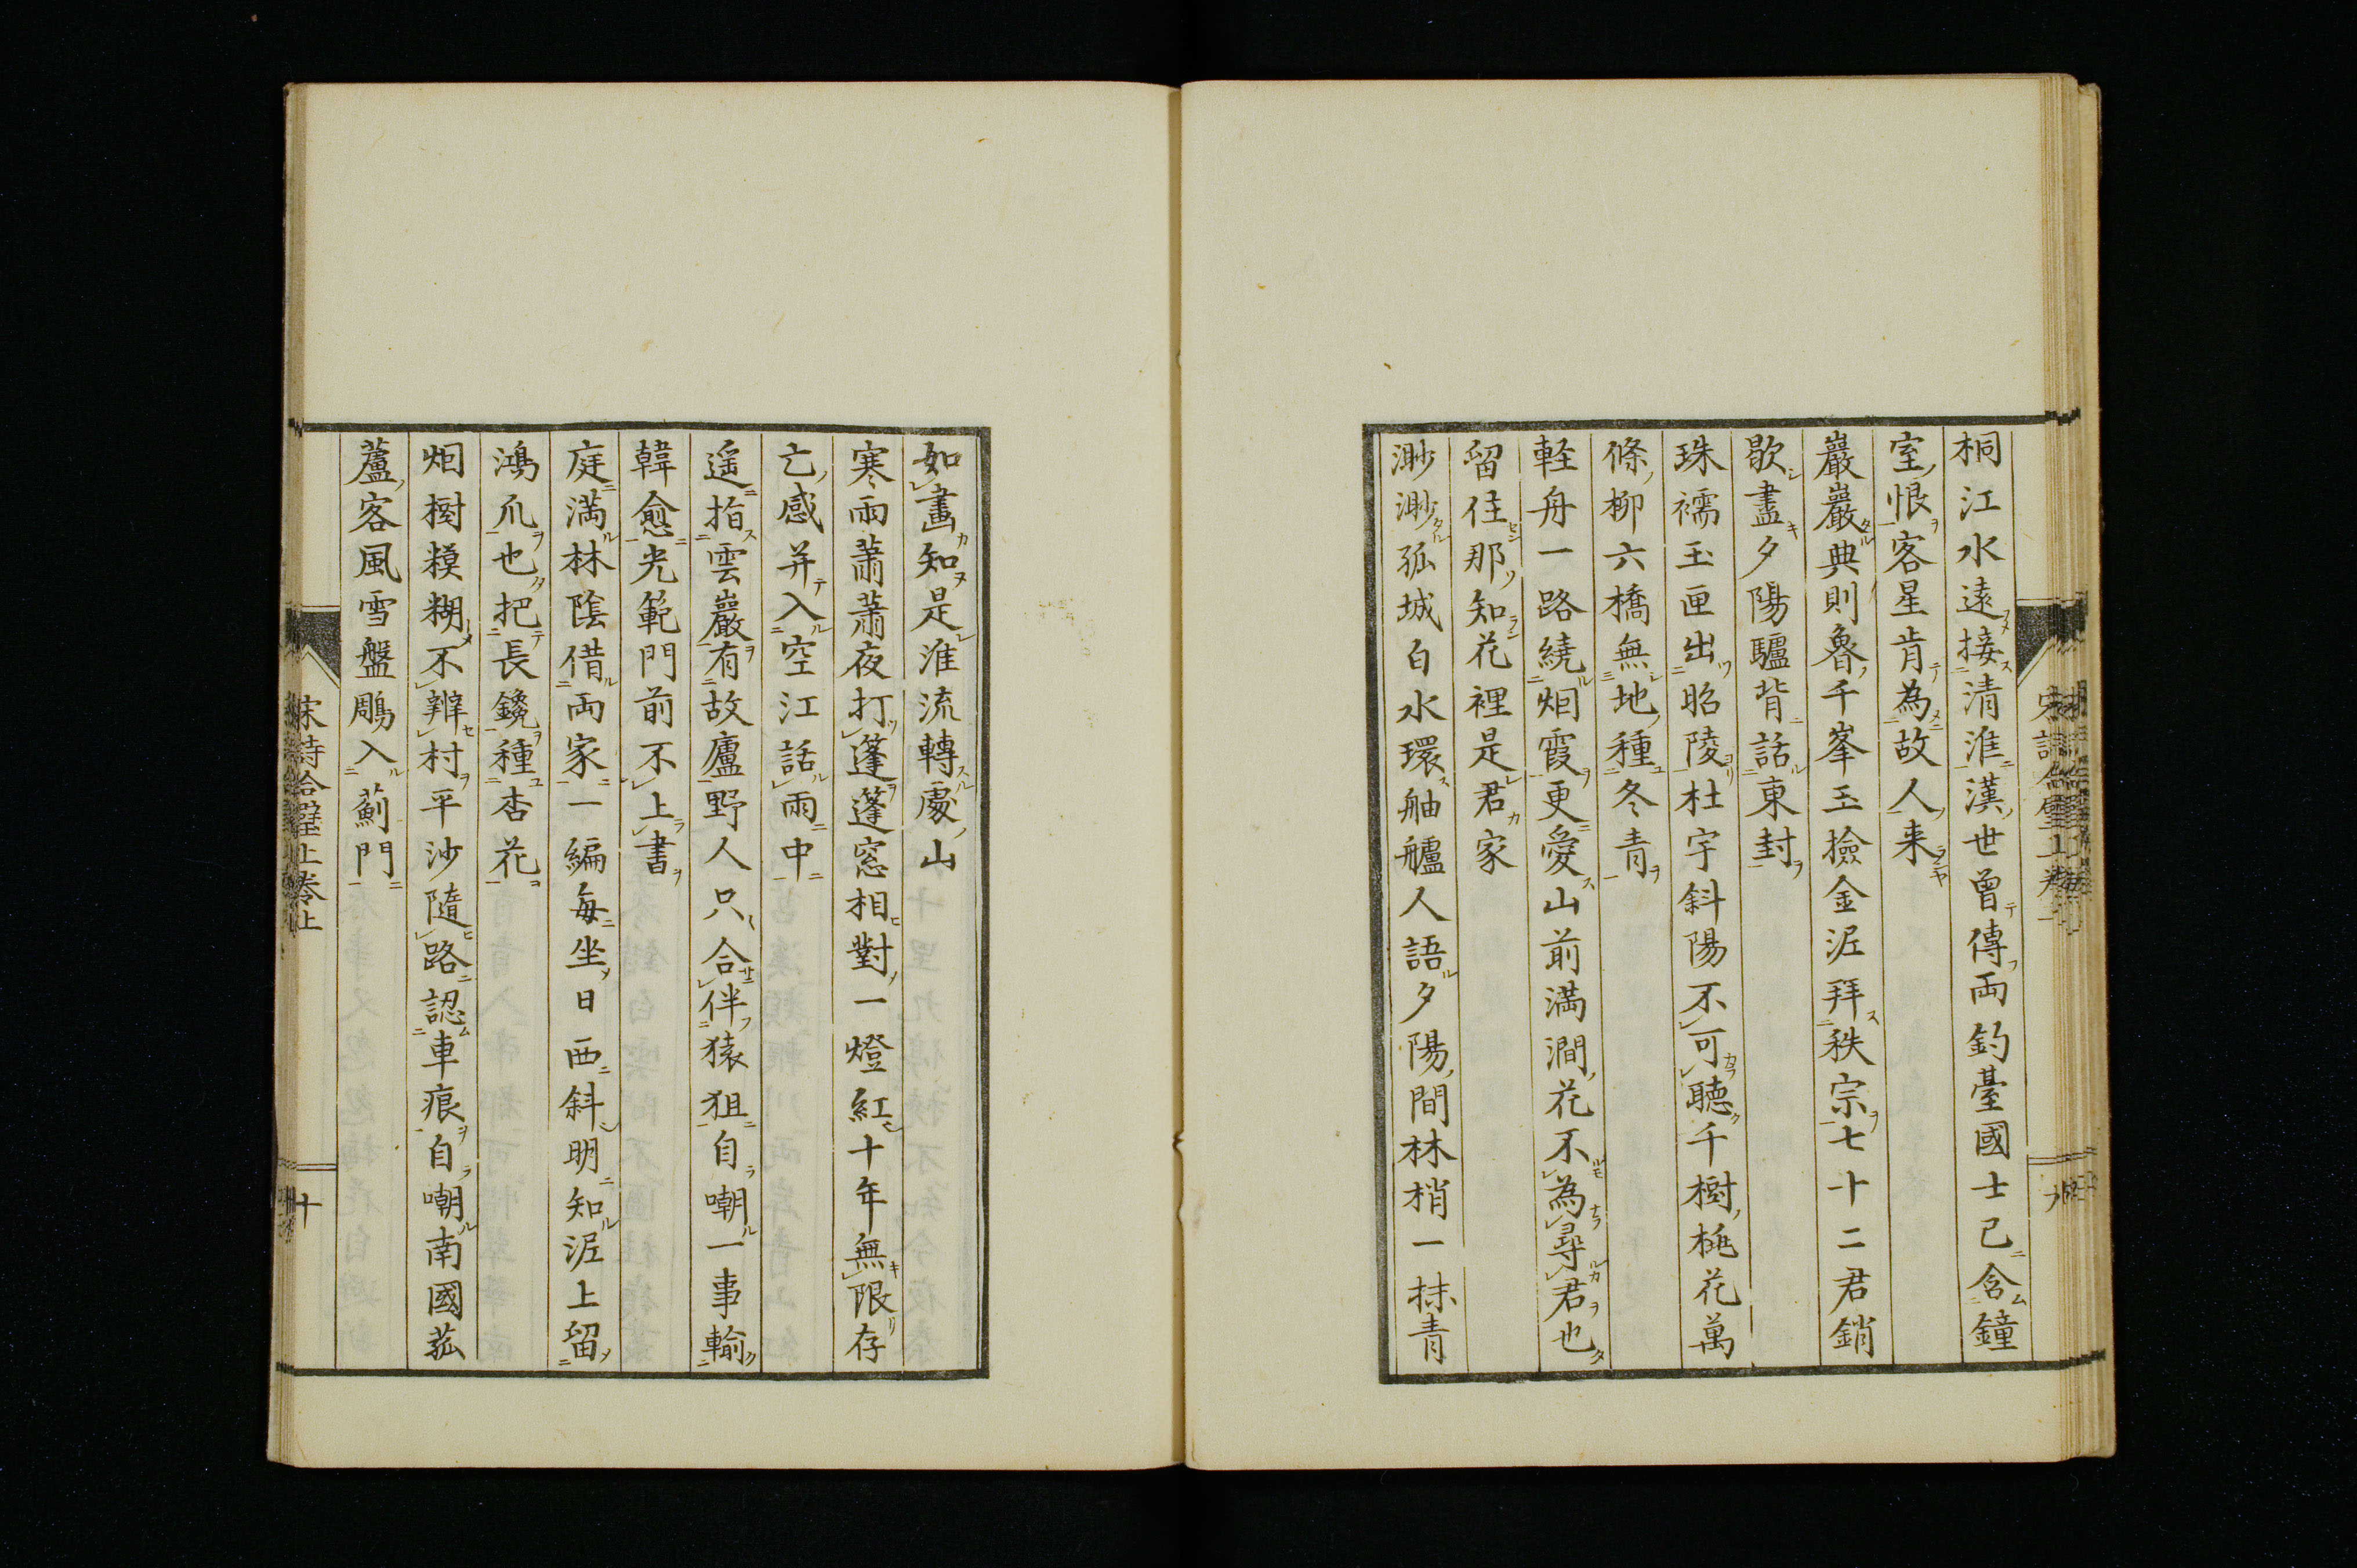 桐江水遠接清淮漢世曾傳両釣臺國士已含鐘
室恨客星肯為故人来
巖巖典則魯千峯玉撿金泥拜秩宗七十二君銷
歇盡夕陽驢背話東封
珠襦玉匣出昭陵杜宇斜陽不可聽千樹桃花萬
條柳六橋無地種冬青
軽舟一路繞烟霞更愛山前満澗花不為尋君也
留住那知花裡是君家
渺渺孤城白水環舳艫人語夕陽間林梢一抹青
如畫知是淮流轉處山
寒雨蕭蕭夜打蓬蓬窓相對一燈紅十年無限存
亡感并入空江話雨中
遥指雲巖有故廬野人只合伴猿狙自嘲一事輸
韓愈光範門前不上書
庭満林陰借両家一編毎坐日西斜明知泥上留
鴻爪也把長鑱種杏花
烟樹糢糊不辨村平沙隨路認車痕自嘲南國菰
蘆客風雪盤鵰入薊門
宋詩合璧上卷上
十